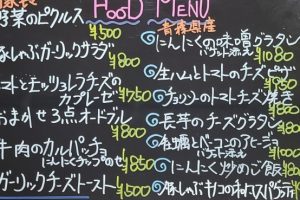 FOOD MENU
野菜のピクルス
¥500
豚しゃぶガーリックサラダ
¥800
トマトとモッツァレラチーズの
カプレーゼ
¥750
おまかせ3点オードブル
¥800
牛肉のカルパッチョ
にんにくチップのせ
¥850
ガーリックチーズトースト
¥500
青森県産
にんにくの味噌グラタン
バゲット添え
¥1080
生ハムとトマトのチーズ
チョリソーのトマトチーズ焼き
¥880
長芋のチーズグラタン
¥880
牡蠣とベーコンのアヒージョ
バゲット添え
¥1100
にんにく炒めのご飯
¥880
豚しゃぶキノコの和風パスタ